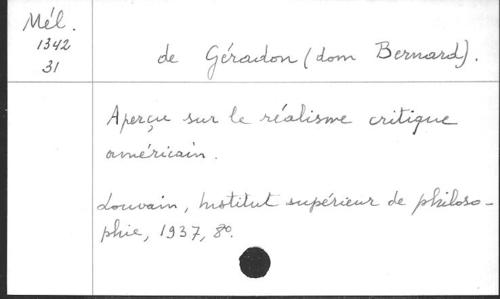 Mél.
1342
31
de Géradon (dom Bernard).
Aperçu sur le réalisme critique
américain.
Louvain, Institut supérieur de philoso-
phie, 1937, 8º.